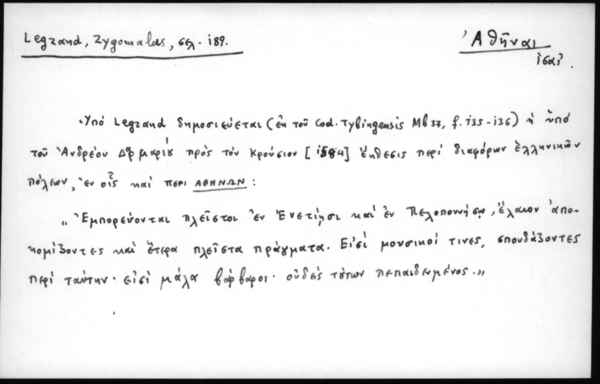 Legrand, Zygomalas, σελ. 189.
Ἀθῆναι
Ὑπὸ Legrand δημοσιεύεται (ἐκ τοῦ Cod. Tybingensis Mb 37, f. 135-136) ἡ ὑπὸ
τοῦ Ἀνδρέου Δαρμαρίου πρὸς τὸν Κρούσιον [1584] ἔκθεσις περὶ διαφόρων ἑλληνικῶν
πόλεων, ἐν οἷς καὶ περὶ ΑΘΗΝΩΝ :
„Ἐμπορεύονται πλεῖστοι ἐν Ἐνετίῃσι καὶ ἐν Πελοποννήσῳ, ἔλαιον ἀπο-
κομίζοντες καὶ ἕτερα πλεῖστα πράγματα. Εἰσὶ μουσικοί τινες, σπουδάζοντες
περὶ ταύτην· εἰσὶ μάλα βάρβαροι· οὐδεὶς τούτων πεπαιδευμένος.„